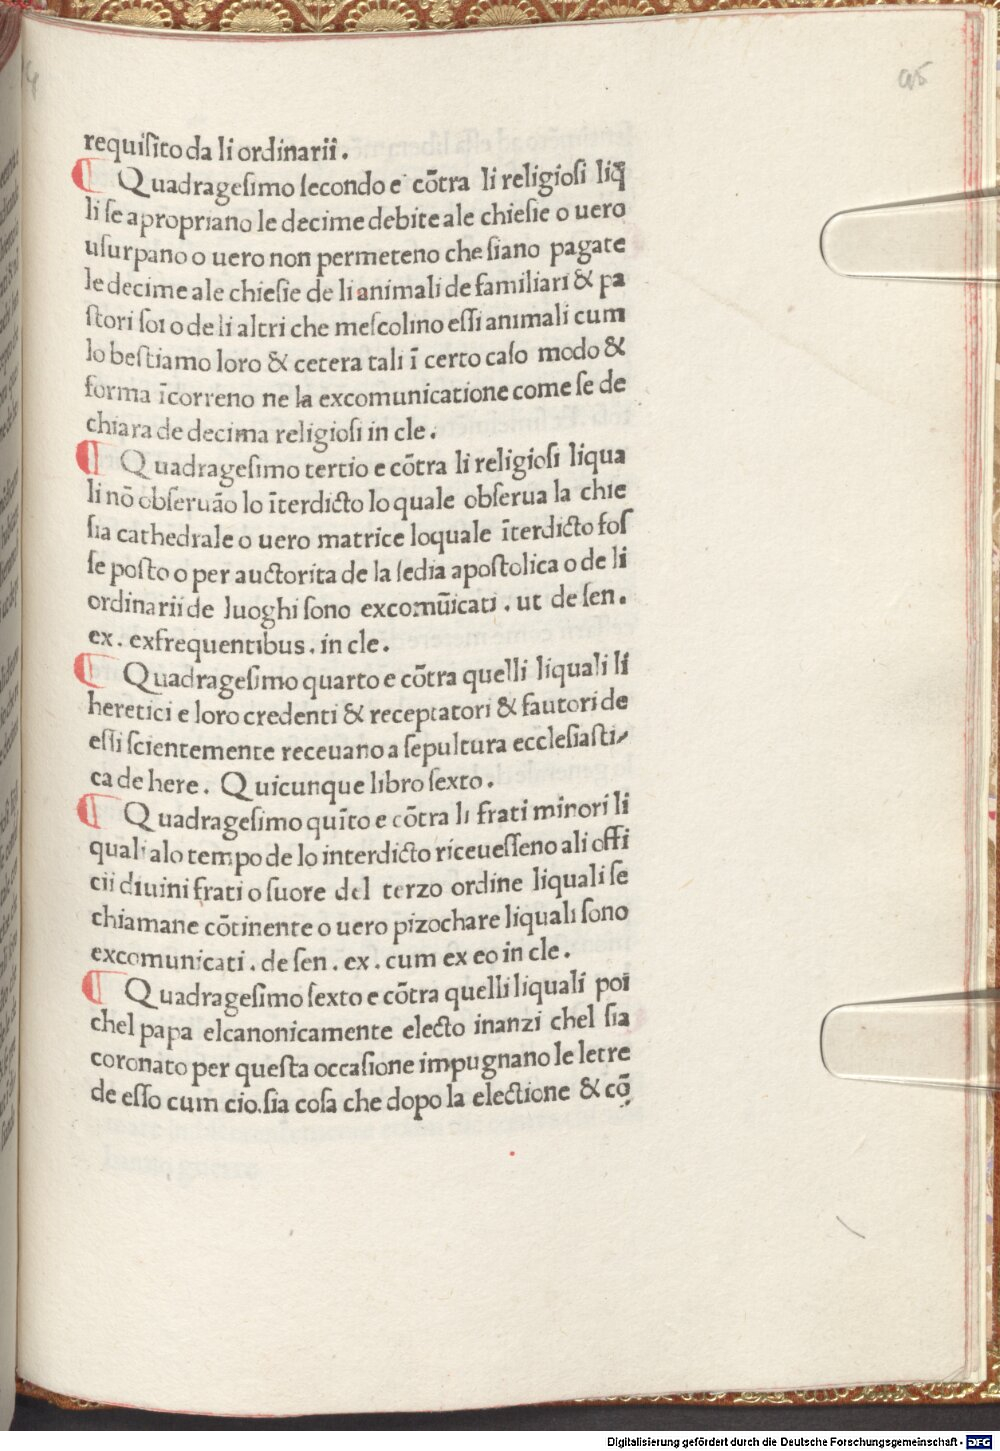 95
requiſito da li ordinarii .
¶ Quadrageſimo ſecondo e cōtra li religioſi liq̄
li ſe apropriano le decime debite ale chieſie o uero
uſurpano o uero non permeteno che ſiano pagate
le decime ale chieſie de li animali de familiari & pa
ſtori ſoi o de li altri che meſcolino eſſi animali cum
lo beſtiamo loro & cetera tali ī certo caſo modo &
forma īcorreno ne la excomunicatione come ſe de
chiara de decima religioſi in cle .
¶ Quadrageſimo tertio e cōtra li religioſi liqua
li nō obſeruāo lo īterdicto lo quale obſerua la chie
ſia cathedrale o uero matrice loquale īterdicto foſ
ſe poſto o per auctorita de la ſedia apoſtolica o de li
ordinarii de luoghi ſono excomūicati . ut de ſen .
ex . exfrequentibus . in cle .
¶ Quadrageſimo quarto e cōtra quelli liquali li
heretici e loro credenti & receptatori & fautori de
eſſi ſcientemente receuano a ſepultura eccleſiaſti⸗
ca de here . Quicunque libro ſexto .
¶ Quadrageſimo quīto e cōtra li frati minori li
quali alo tempo de lo interdicto riceueſſeno ali offi
cii diuini frati o ſuore del terzo ordine liquali ſe
chiamane cōtinente o uero pizochare liquali ſono
excomunicati . de ſen . ex . cum ex eo in cle .
¶ Quadrageſimo ſexto e cōtra quelli liquali poi
chel papa elcanonicamente electo inanzi chel ſia
coronato per queſta occaſione impugnano le letre
de eſſo cum cio.ſia coſa che dopo la electione & cō
Digitalisierung gefördert durch die Deutsche Forschungsgemeinschaft - DFG